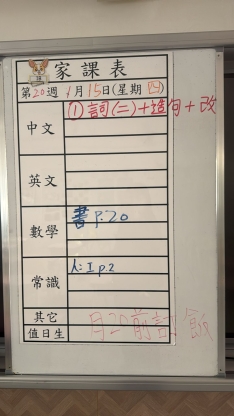 家課表
第20週 1月15日(星期四)
中文 ①詞(二)+造句+改
英文
數學 書P.20
常識 人:I p.2
其它
值日生 月20前訂飯